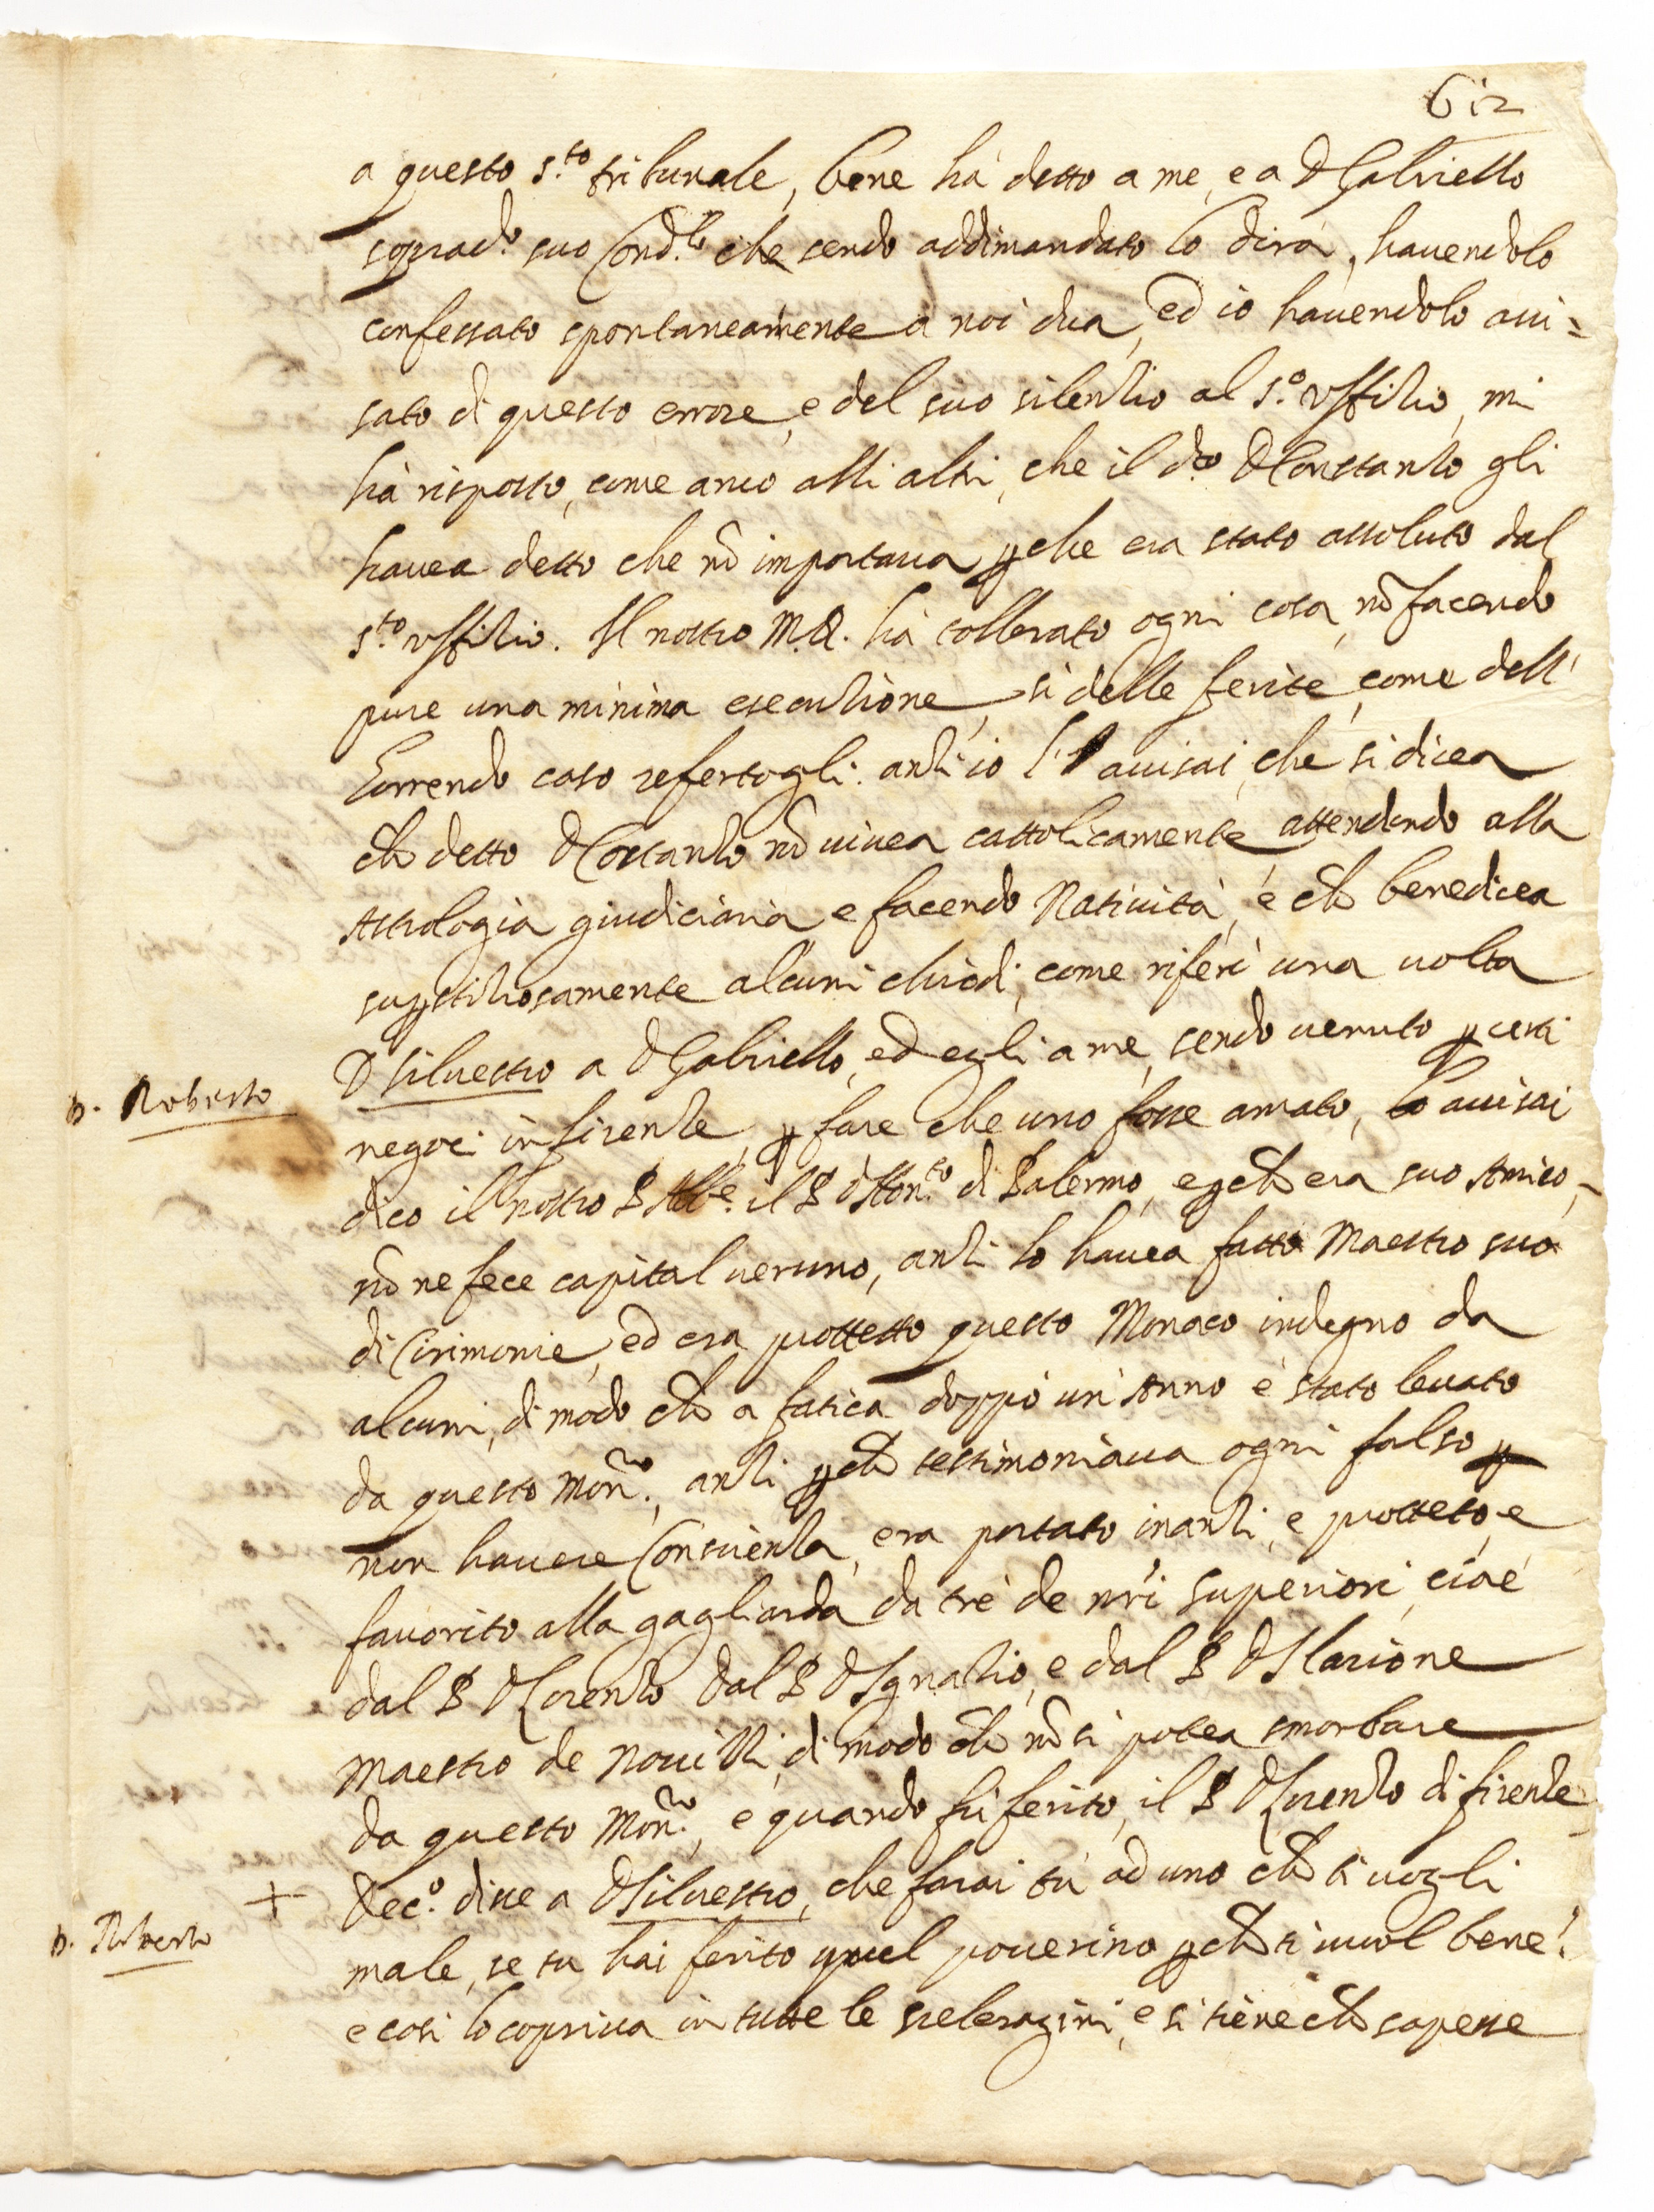 612
a questo s.to tribunale, bene hà detto a me, e a D Gabriello
soprad.o suo Cond.lo che sendo addimandato lo dirà, hauendolo
confessato spontaneamente a noi dua, ed io hauendolo aui=
sato di questo errore, e del suo silentio al s.o vffitio, mi
hà risposto, come anco alli altri, che il d.to D Constanzo gli
hauea detto che nō importaua pche era stato assoluto dal
s.to vffitio. Il nostro M.R. hà tollerato ogni cosa, nō facendo
pure una minima esecutione, si delle ferite, come dell'
horrendo caso refertogli. anzi io l' auisai, che si dicea
che detto D Costanzo nō uiuea cattolicamente attendendo alla
Astrologia giudiciaria e facendo Natiuità, e che benedicea
supstitiosamente alcuni chiodi, come riferì una uolta
D Siluestro a D Gabriello, ed egli a me, sendo uenuto p certi
D. Roberto
negoci in firenze, p fare che uno fosse amato, lo auisai
dico il nostro P Abb.e il P D Ant.o di Palermo, e pche era suo Amico,
nō ne fece capital ueruno, anzi lo hauea fatto Maestro suo
di Cirimonie, ed era protetto questo Monaco indegno da
alcuni, di modo che a fatica doppo un' Anno è stato leuato
da questo Mon.ro, anzi pche testimoniaua ogni falso p
non hauere Conscienza, era portato inanzi, e protteto, e
fauorito alla gagliarda da tre de nr̄i superiori, cioè
dal P D Lorenzo dal P D Ignatio, e dal P D Ilarione
Maestro de Nouitii, di modo che nō si potea smorbare
da questo Mon.ro, e quando fù ferito, il P D Lorenzo di firenze
+ Dec.o disse a D Siluestro, che farai tu ad uno che ti uogli
D. Roberto
male, se tu hai ferito quel pouerino pche ti uuol bene?
e così lo copriua in tutte le sceleragini, e si tiene che sapesse